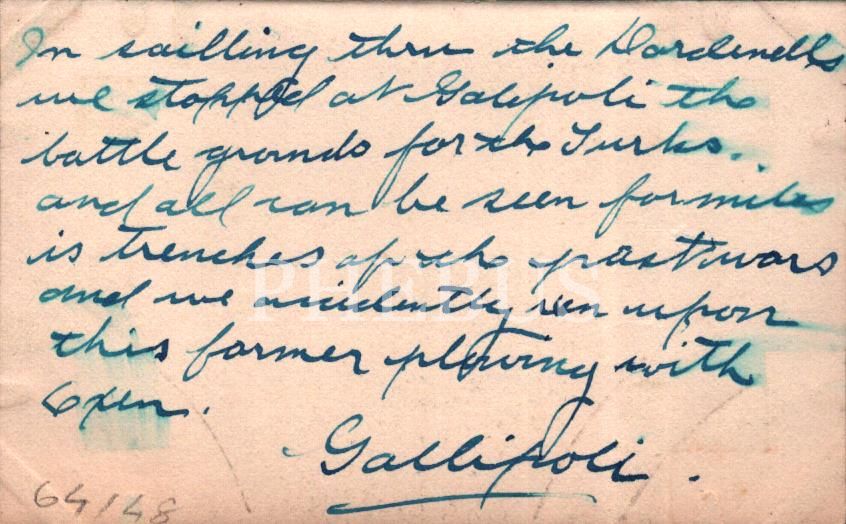 In sailling thru the Dardenells
we stopped at Galipoli the
battle grounds for the Turks.
and all can be seen for miles
is trenches of the past wars
and we acidently run upon
this farmer plowing with
oxen.
Gallipoli.
64/48
PHEBUS